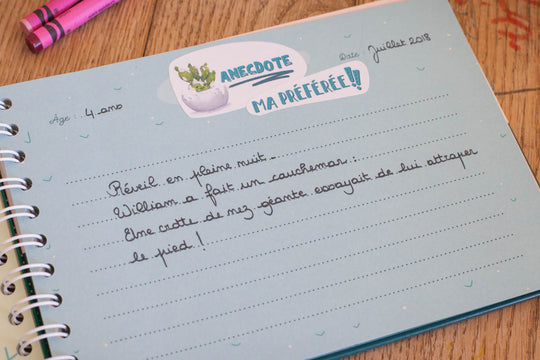 ANECDOTE
MA PRÉFÉRÉE!!
Date Juillet 2018
Age : 4 ans
Réveil en pleine nuit...
William a fait un cauchemar :
Une crotte de nez géante essayait de lui attraper
le pied !